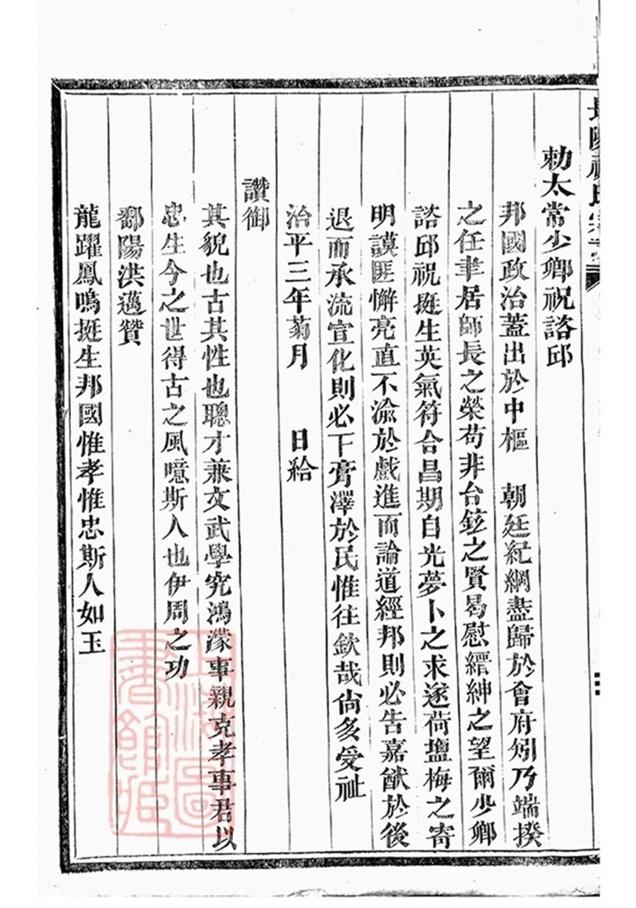 勅太常少卿祝諮邱
邦國政治蓋出於中樞　朝廷紀綱盡歸於會府矧乃端揆
之任聿居師長之榮苟非台鉉之賢曷慰縉紳之望爾少卿
諮邱祝挺生英氣符合昌期自光夢卜之求遂荷塩梅之寄
明謨匪懈亮直不渝於戲進而論道經邦則必告嘉猷於後
退而承流宣化則必下膏澤於民惟往欽哉尙多受祉
治平三年菊月　日給
讚御
其貌也古其性也聰才兼文武學究鴻濛事親克孝事君以
忠生今之世得古之風噫斯人也伊周之功
鄱陽洪邁贊
龍躍鳳鳴挺生邦國惟孝惟忠斯人如玉
圖
書館